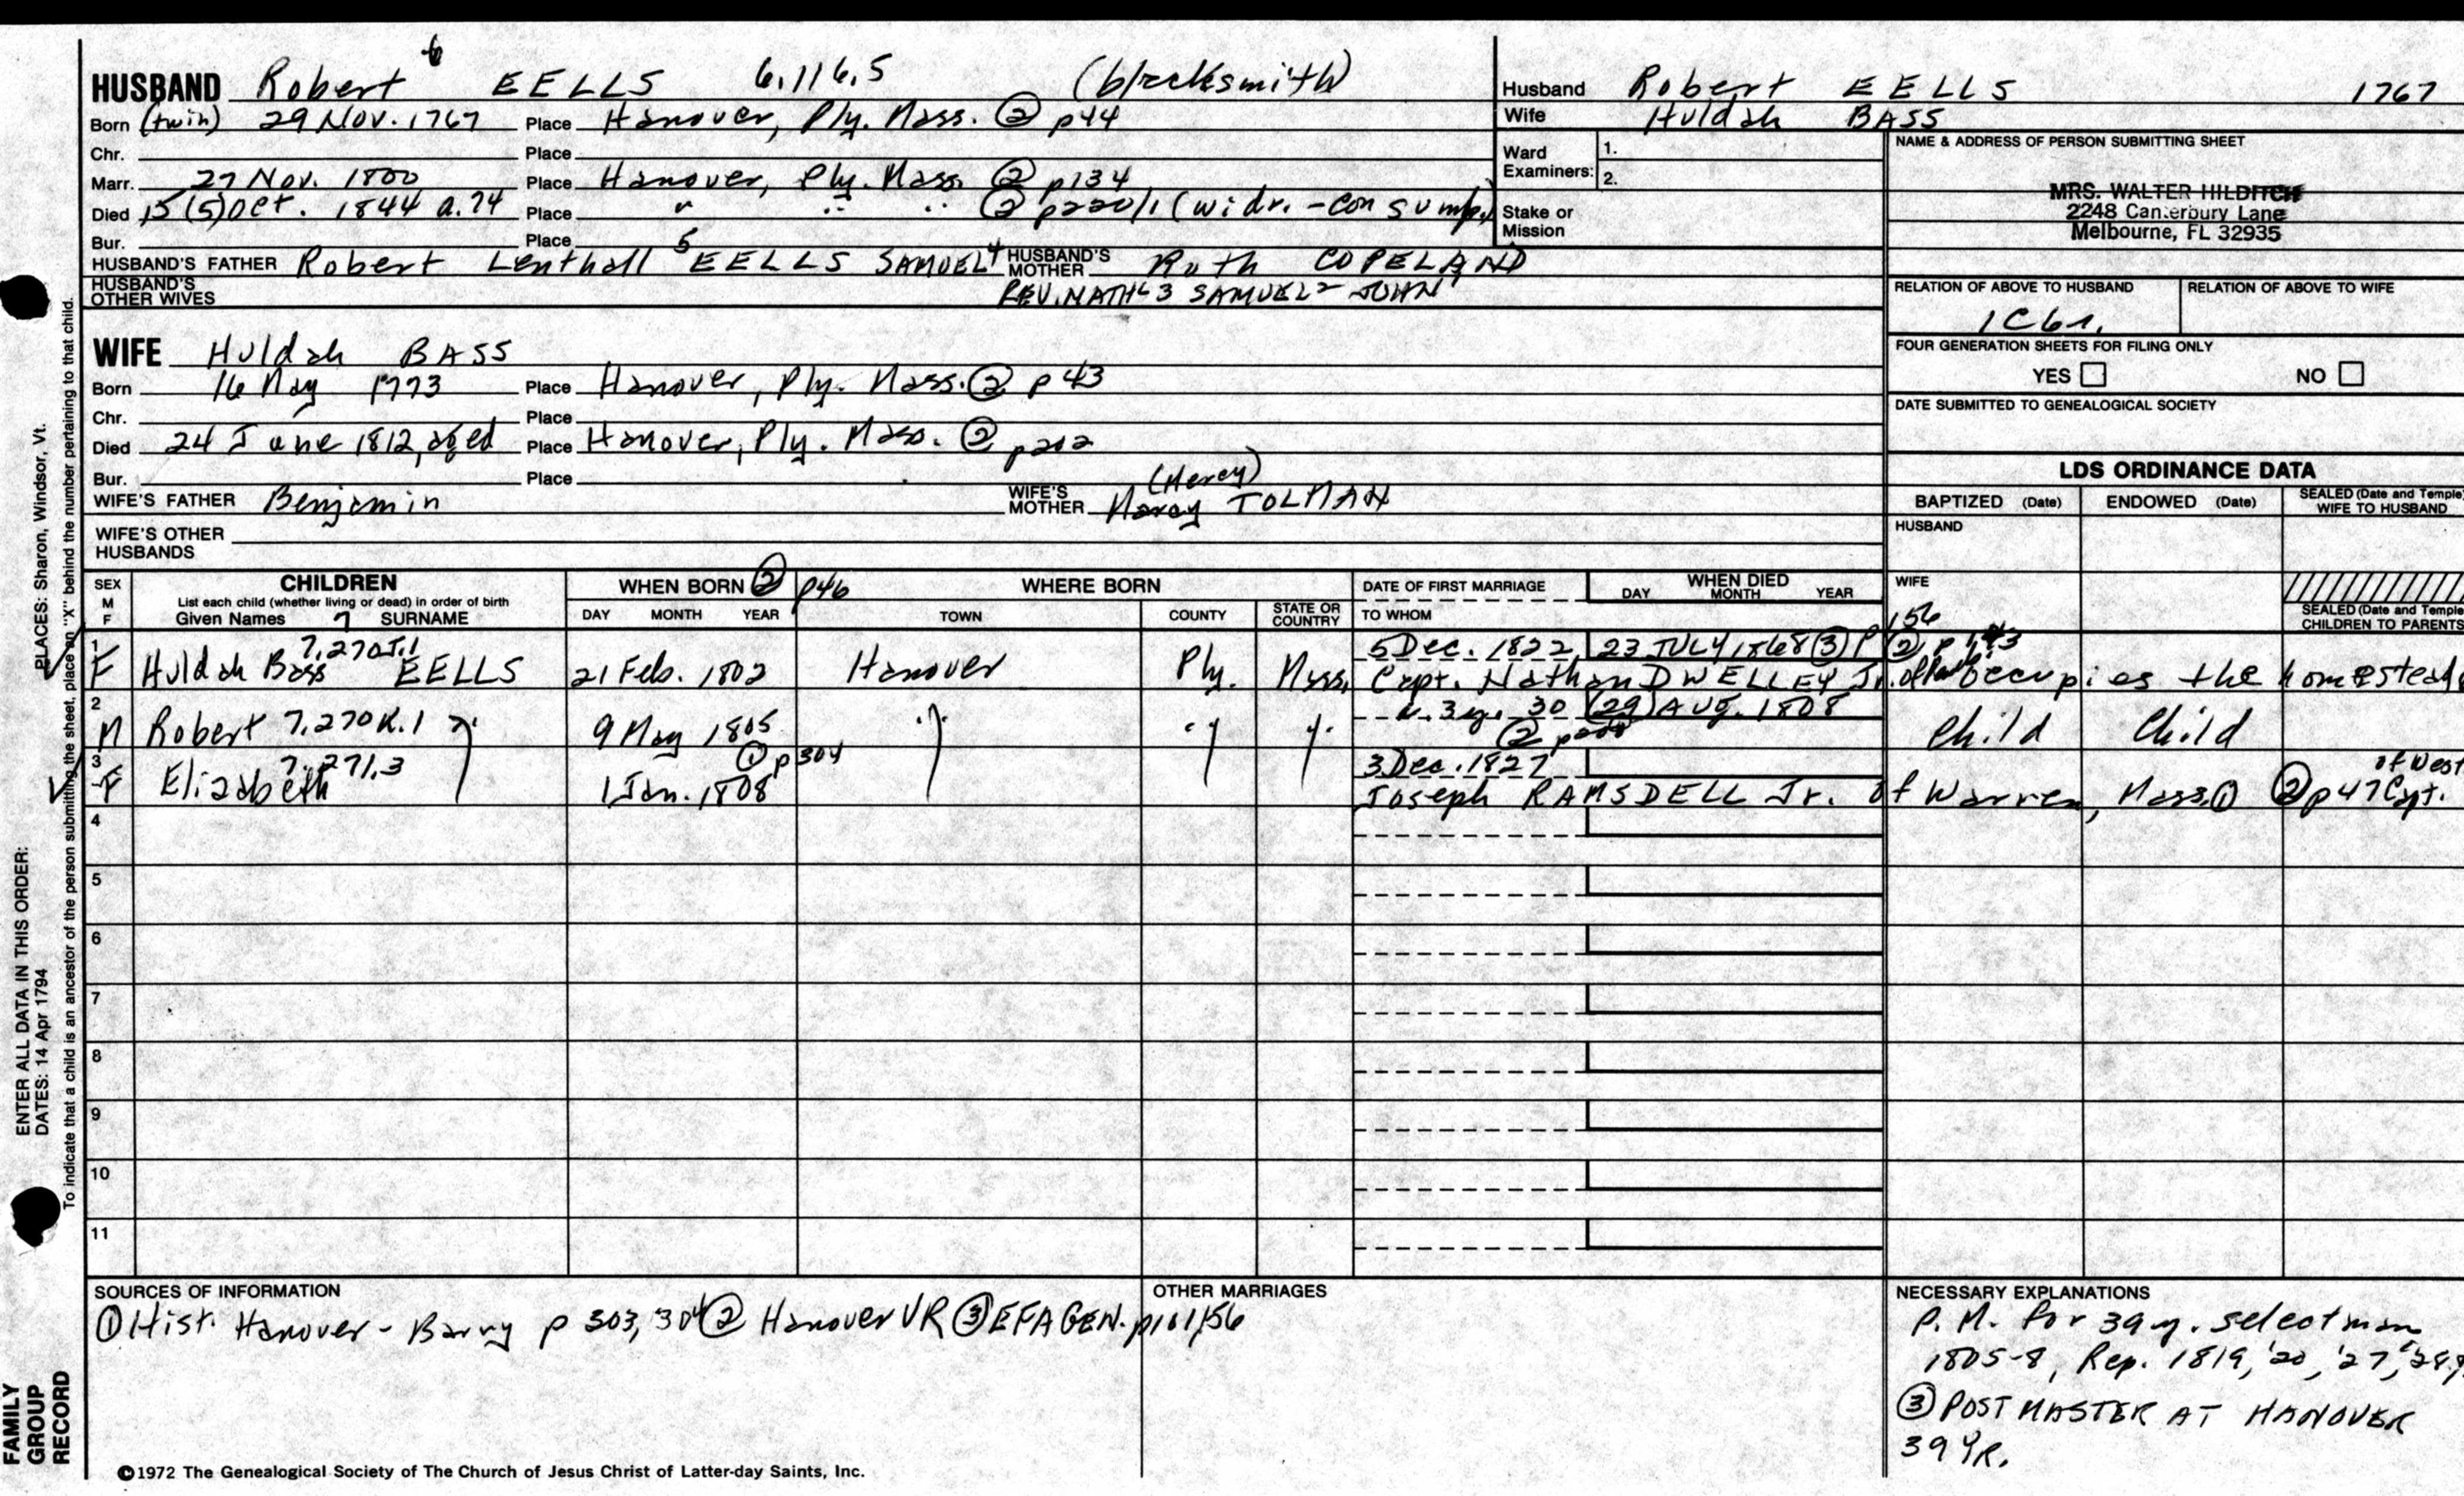 HUSBAND Robert 6 EELLS 6.116.5 (blacksmith)
Born (twin) 29 Nov. 1767 Place Hanover, Ply. Mass. ② p44
Chr. Place
Marr. 27 Nov. 1800 Place Hanover, Ply. Mass. ② p134
Died 15 (5) Oct. 1844 a.74 Place " " " ② p220/1 (widr. - consump.)
Bur. Place
HUSBAND'S FATHER Robert Lenthall 5 EELLS SAMUEL 4 HUSBAND'S MOTHER Ruth COPELAND
HUSBAND'S OTHER WIVES REV. NATHL 3 SAMUEL 2 JOHN 1
WIFE Huldah BASS
Born 16 May 1773 Place Hanover, Ply. Mass. ② p43
Chr. Place
Died 24 June 1812, aged Place Hanover, Ply. Mass. ② p202
Bur. Place
WIFE'S FATHER Benjamin WIFE'S MOTHER (Mercy) Marcy TOLMAN
WIFE'S OTHER HUSBANDS
Husband Robert EELLS 1767
Wife Huldah BASS
Ward Examiners: 1.
2.
Stake or Mission
NAME & ADDRESS OF PERSON SUBMITTING SHEET
MRS. WALTER HILDITCH
2248 Canterbury Lane
Melbourne, FL 32935
RELATION OF ABOVE TO HUSBAND RELATION OF ABOVE TO WIFE
1C6r.
FOUR GENERATION SHEETS FOR FILING ONLY
YES NO
DATE SUBMITTED TO GENEALOGICAL SOCIETY
LDS ORDINANCE DATA
BAPTIZED (Date) ENDOWED (Date) SEALED (Date and Temple) WIFE TO HUSBAND
HUSBAND
WIFE
SEALED (Date and Temple) CHILDREN TO PARENTS
SEX M F CHILDREN WHEN BORN ② p46 WHERE BORN DATE OF FIRST MARRIAGE WHEN DIED
List each child (whether living or dead) in order of birth
Given Names 7 SURNAME DAY MONTH YEAR TOWN COUNTY STATE OR COUNTRY TO WHOM DAY MONTH YEAR
1 7,270J.1 5 Dec. 1822 23 JULY 1868 ③ P 156 ②
F Huldah Bass EELLS 21 Feb. 1802 Hanover Ply. Mass. Capt. Nathan DWELLEY Jr. occupies the homestead
2 a. 3y. 30 (29) AUG. 1808
M Robert 7,270K.1 " 9 May 1805 " " " ② Child Child
3 7,271.3 ① p304 3 Dec. 1827 of West
F Elizabeth 1 Jan. 1808 Joseph RAMSDELL Jr. of Warren, Mass. ① ② p47 Capt.
4
5
6
7
8
9
10
11
SOURCES OF INFORMATION
① Hist. Hanover - Barry p 303, 304 ② Hanover VR ③ EFA GEN. p101,156
OTHER MARRIAGES
NECESSARY EXPLANATIONS
P.M. for 39 y. selectman
1805-8, Rep. 1819, '20, '27, '28,
③ POSTMASTER AT HANOVER
39 YR.
©1972 The Genealogical Society of The Church of Jesus Christ of Latter-day Saints, Inc.
FAMILY
GROUP
RECORD
ENTER ALL DATA IN THIS ORDER:
DATES: 14 Apr 1794
PLACES: Sharon, Windsor, Vt.
To indicate that a child is an ancestor of the person submitting the sheet, place an "X" behind the number pertaining to that child.